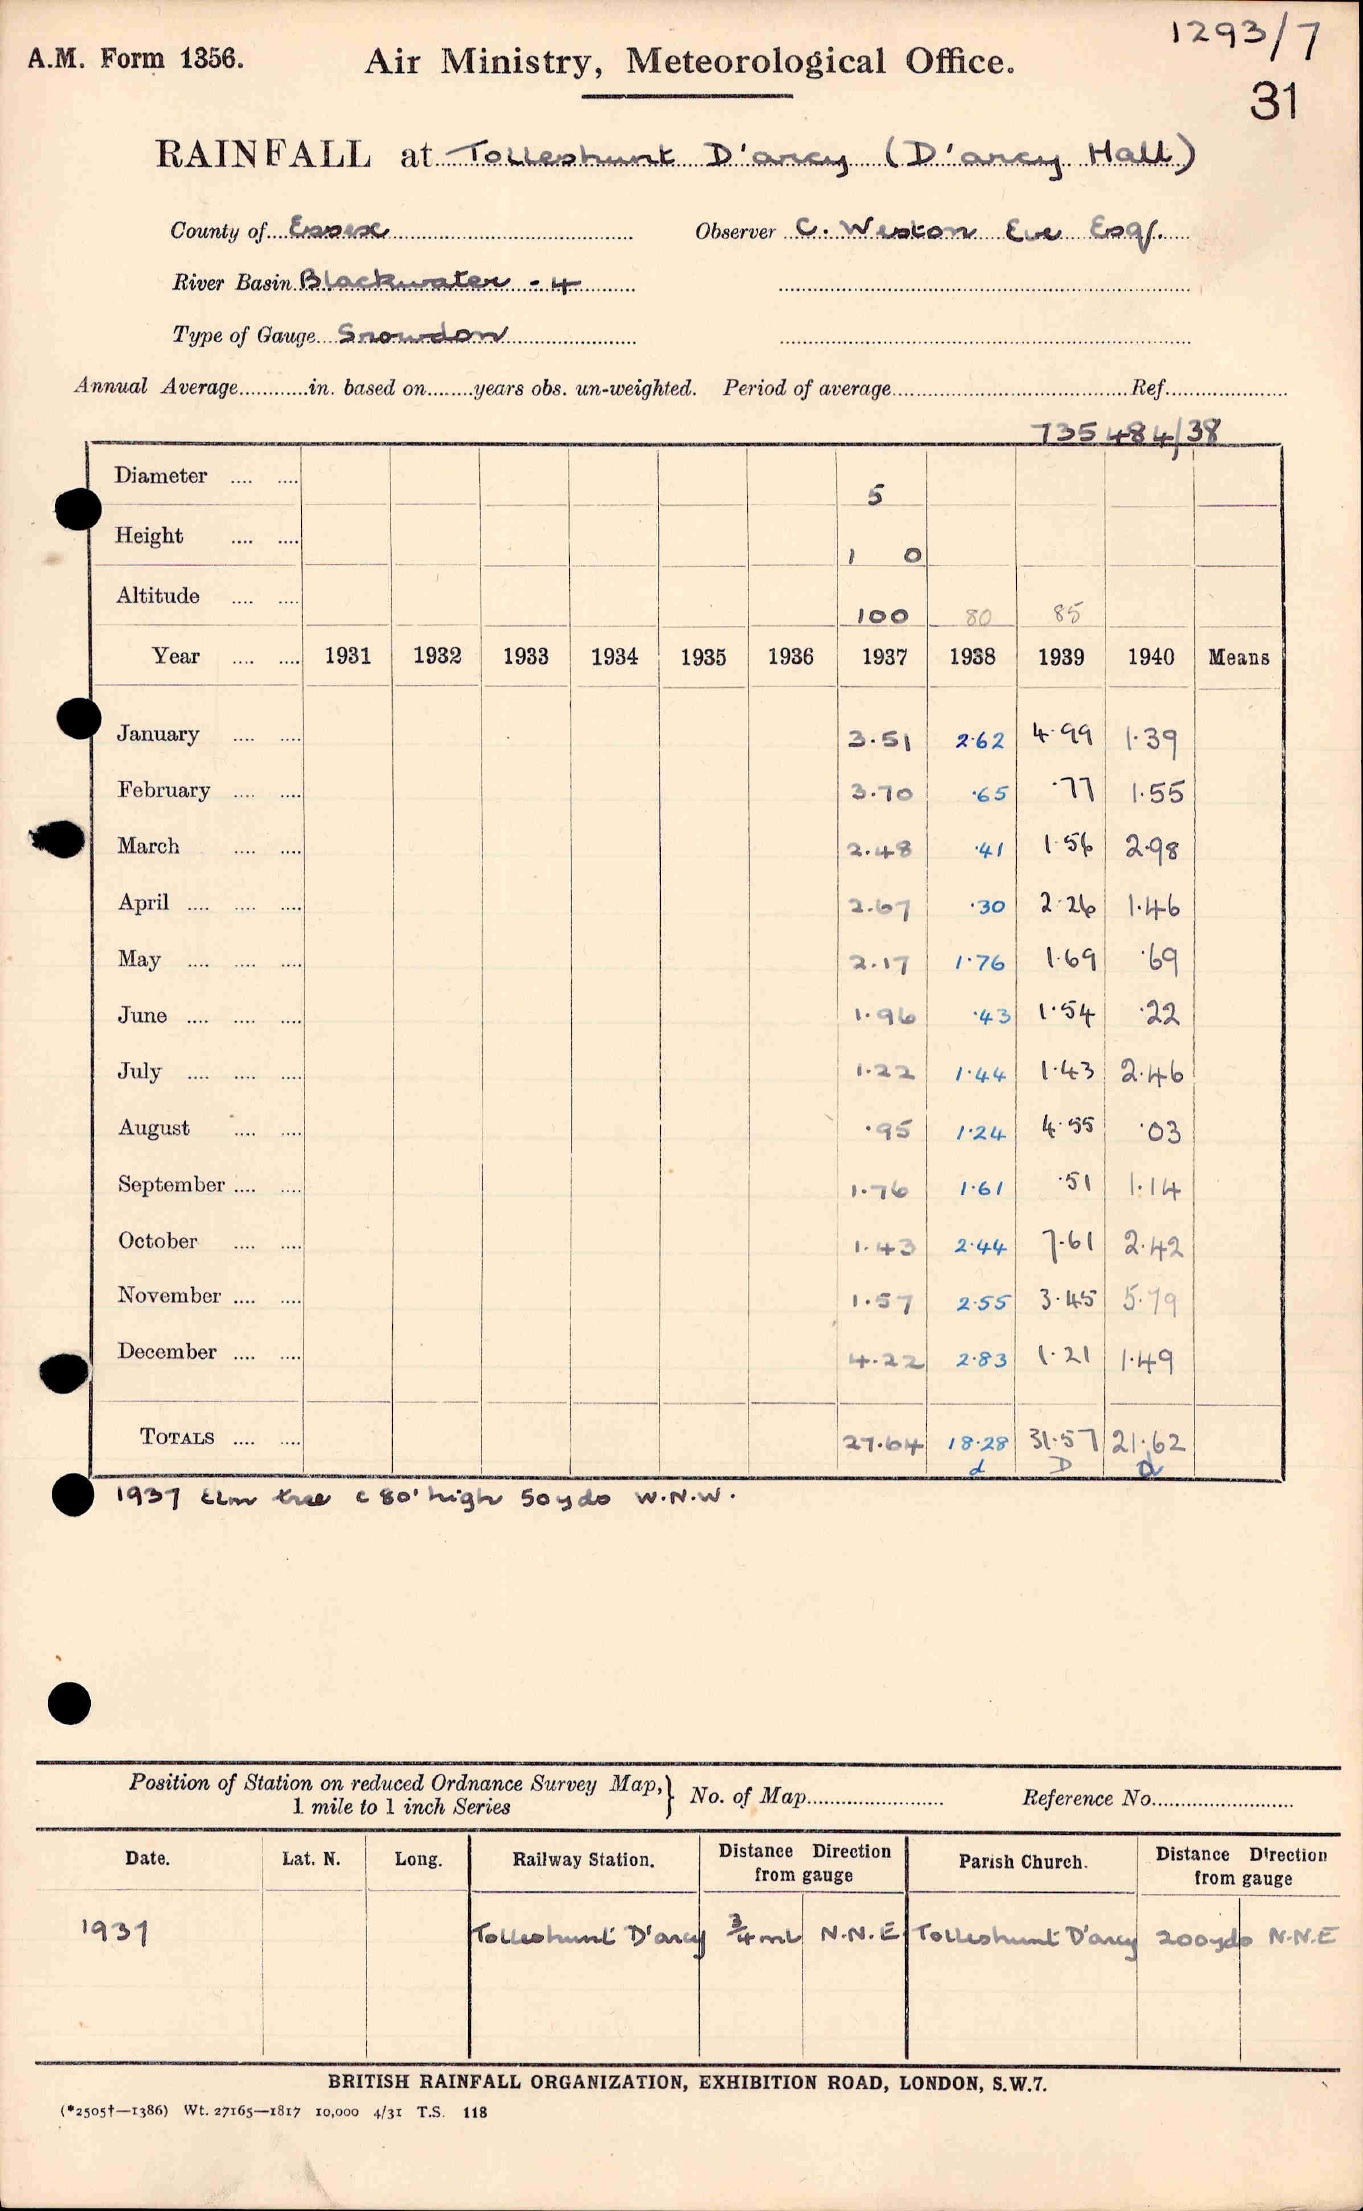 1293/7
A.M. Form 1356. Air Ministry, Meteorological Office.
31
RAINFALL at Tolleshunt D'arcy (D'arcy Hall)
County of Essex Observer C. Weston Eve Esq.
River Basin Blackwater - 4
Type of Gauge Snowdon
Annual Average............in. based on........years obs. un-weighted. Period of average.................... Ref.....................
735484/38
Diameter .... .... 5
Height .... .... 1 0
Altitude .... .... 100 80 85
Year .... .... 1931 1932 1933 1934 1935 1936 1937 1938 1939 1940 Means
January .... .... 3.51 2.62 4.99 1.39
February .... .... 3.70 .65 .77 1.55
March .... .... 2.48 .41 1.56 2.98
April .... .... .... 2.67 .30 2.26 1.46
May .... .... .... 2.17 1.76 1.69 .69
June .... .... .... 1.96 .43 1.54 .22
July .... .... .... 1.22 1.44 1.43 2.46
August .... .... .95 1.24 4.55 .03
September .... .... 1.76 1.61 .51 1.14
October .... .... 1.43 2.44 7.61 2.42
November .... .... 1.57 2.55 3.45 5.79
December .... .... 4.22 2.83 1.21 1.49
TOTALS .... .... 27.64 18.28 31.57 21.62
d D d
1937 Elm tree c 80' high 50 yds W.N.W.
Position of Station on reduced Ordnance Survey Map, } No. of Map........................ Reference No.........................
1 mile to 1 inch Series
Date. Lat. N. Long. Railway Station. Distance Direction from gauge Parish Church. Distance Direction from gauge
1937 Tolleshunt D'arcy 3/4 ml N.N.E. Tolleshunt D'arcy 200 yds N.N.E
BRITISH RAINFALL ORGANIZATION, EXHIBITION ROAD, LONDON, S.W.7.
(*2505†—1386) Wt. 27165—1817 10,000 4/31 T.S. 118